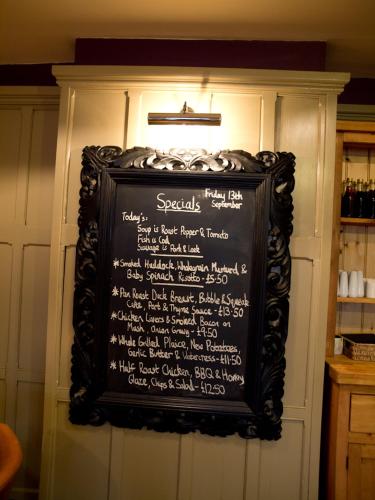 Specials
Friday 13th
September
Today's:
Soup is Roast Pepper & Tomato
Fish is Cod
Sausage is Pork & Leek
* Smoked Haddock, Wholegrain Mustard &
Baby Spinach Risotto - £5.50
* Pan Roast Duck Breast, Bubble & Squeak
Cake, Port & Thyme Sauce - £13.50
* Chicken Livers & Smoked Bacon on
Mash, Onion Gravy - £9.50
* Whole Grilled Plaice, New Potatoes,
Garlic Butter & - £11.50
* Half Roast Chicken, BBQ & Honey
Glaze, Chips & Salad - £12.50